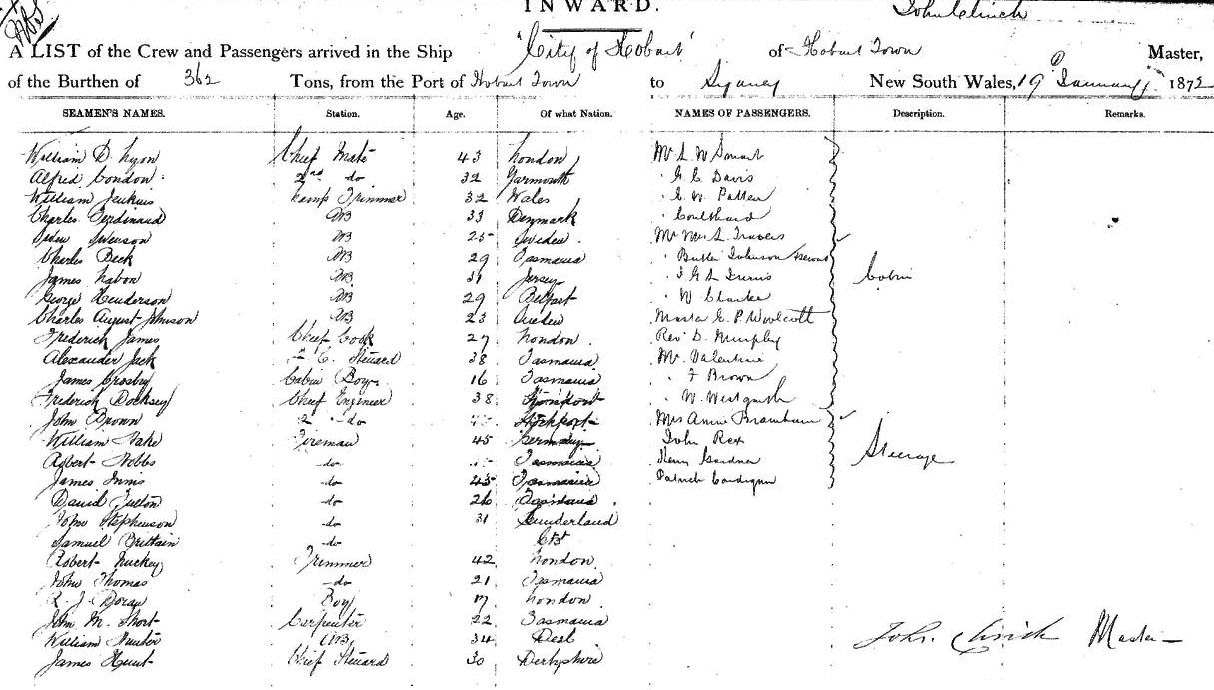 INWARD.
John Clinch
A LIST of the Crew and Passengers arrived in the Ship "City of Hobart" of Hobart Town Master,
of the Burthen of 362 Tons, from the Port of Hobart Town to Sydney New South Wales, 19 January 1872
SEAMEN'S NAMES. Station. Age. Of what Nation. NAMES OF PASSENGERS. Description. Remarks.
William D. Lyon Chief Mate 43 London Mr L W Smart
Alfred Condon 2nd do 32 Yarmouth " G C Davis
William Jenkins Lamp Trimmer 32 Wales " C W Patten
Charles Ferdinand AB 33 Denmark " Coulthard
Swenson AB 25 Sweden Mr Mrs L Travers
Charles Beck AB 29 Tasmania " Butler Johnson
James Nabon AB 31 Jersey Cabin
George Henderson AB 29 Belfast " W Clarke
Charles August Johnson AB 23 Sweden Master C P Woolcott
Frederick James Chief Cook 27 London Rev D. Murphy
Alexander Jack 2 C. Steward 38 Tasmania Mr Valentine
James Crosby Cabin Boy 16 Tasmania " F Brown
Frederick Chief Engineer 38 " W. Westgarth
John Brown 2 do Stockport Mrs Annie
William Fireman 45 Germany John Rex
Robert Hobbs do Tasmania Gardner Steerage
James Innis do 45 Tasmania Patrick
David do 26 Tasmania
John Stephenson do 31 Sunderland
Samuel Brittain do
Robert Trimmer 42 London
John Thomas do 21 Tasmania
Boy 17 London
John M. Short Carpenter 22 Tasmania
William Hunter AB 34 Deal John Clinch Master
James Hunt Chief Steward 30 Derbyshire